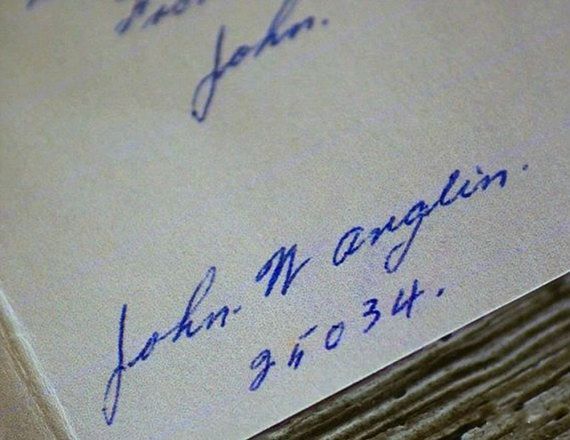 John.
John. W anglin.
25034.